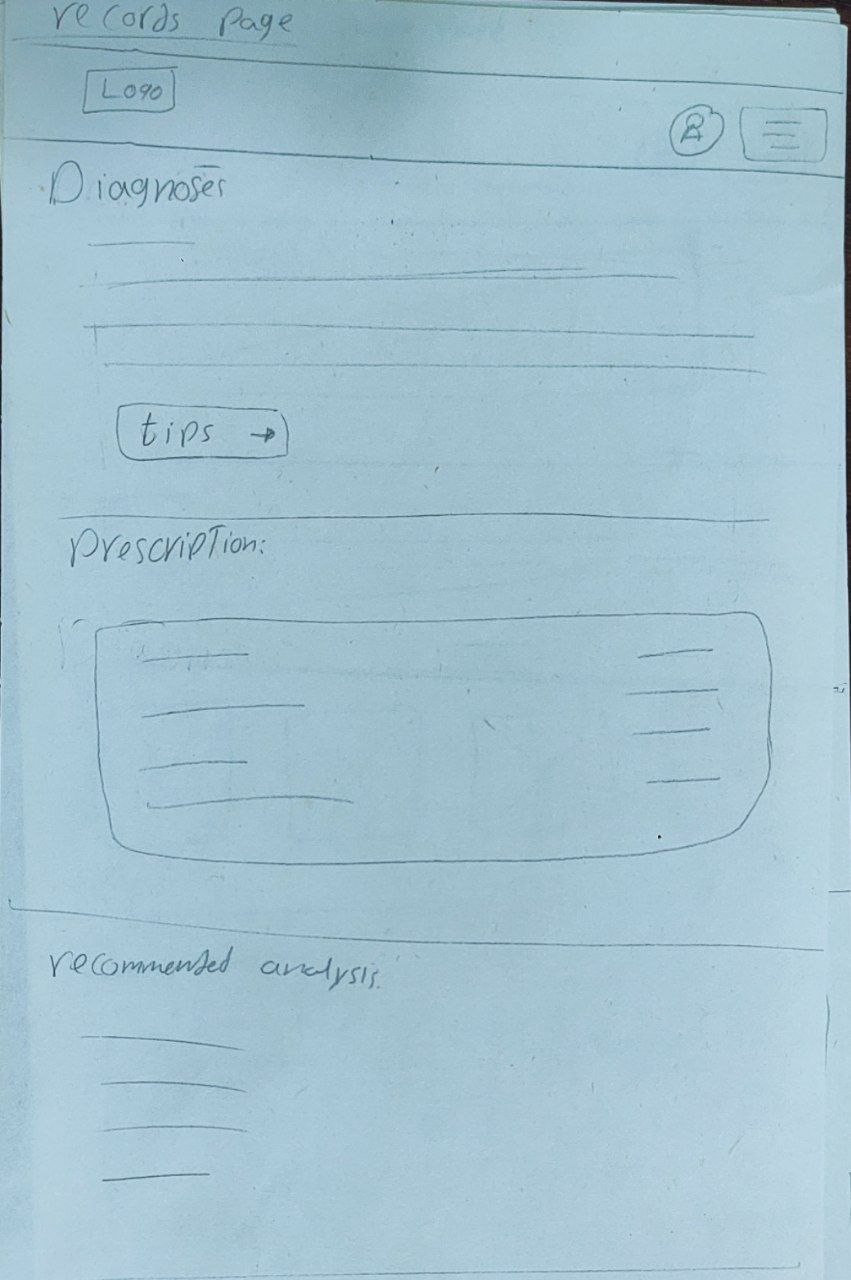 records page
Logo
Diagnoses
tips →
prescription:
recommended analysis.